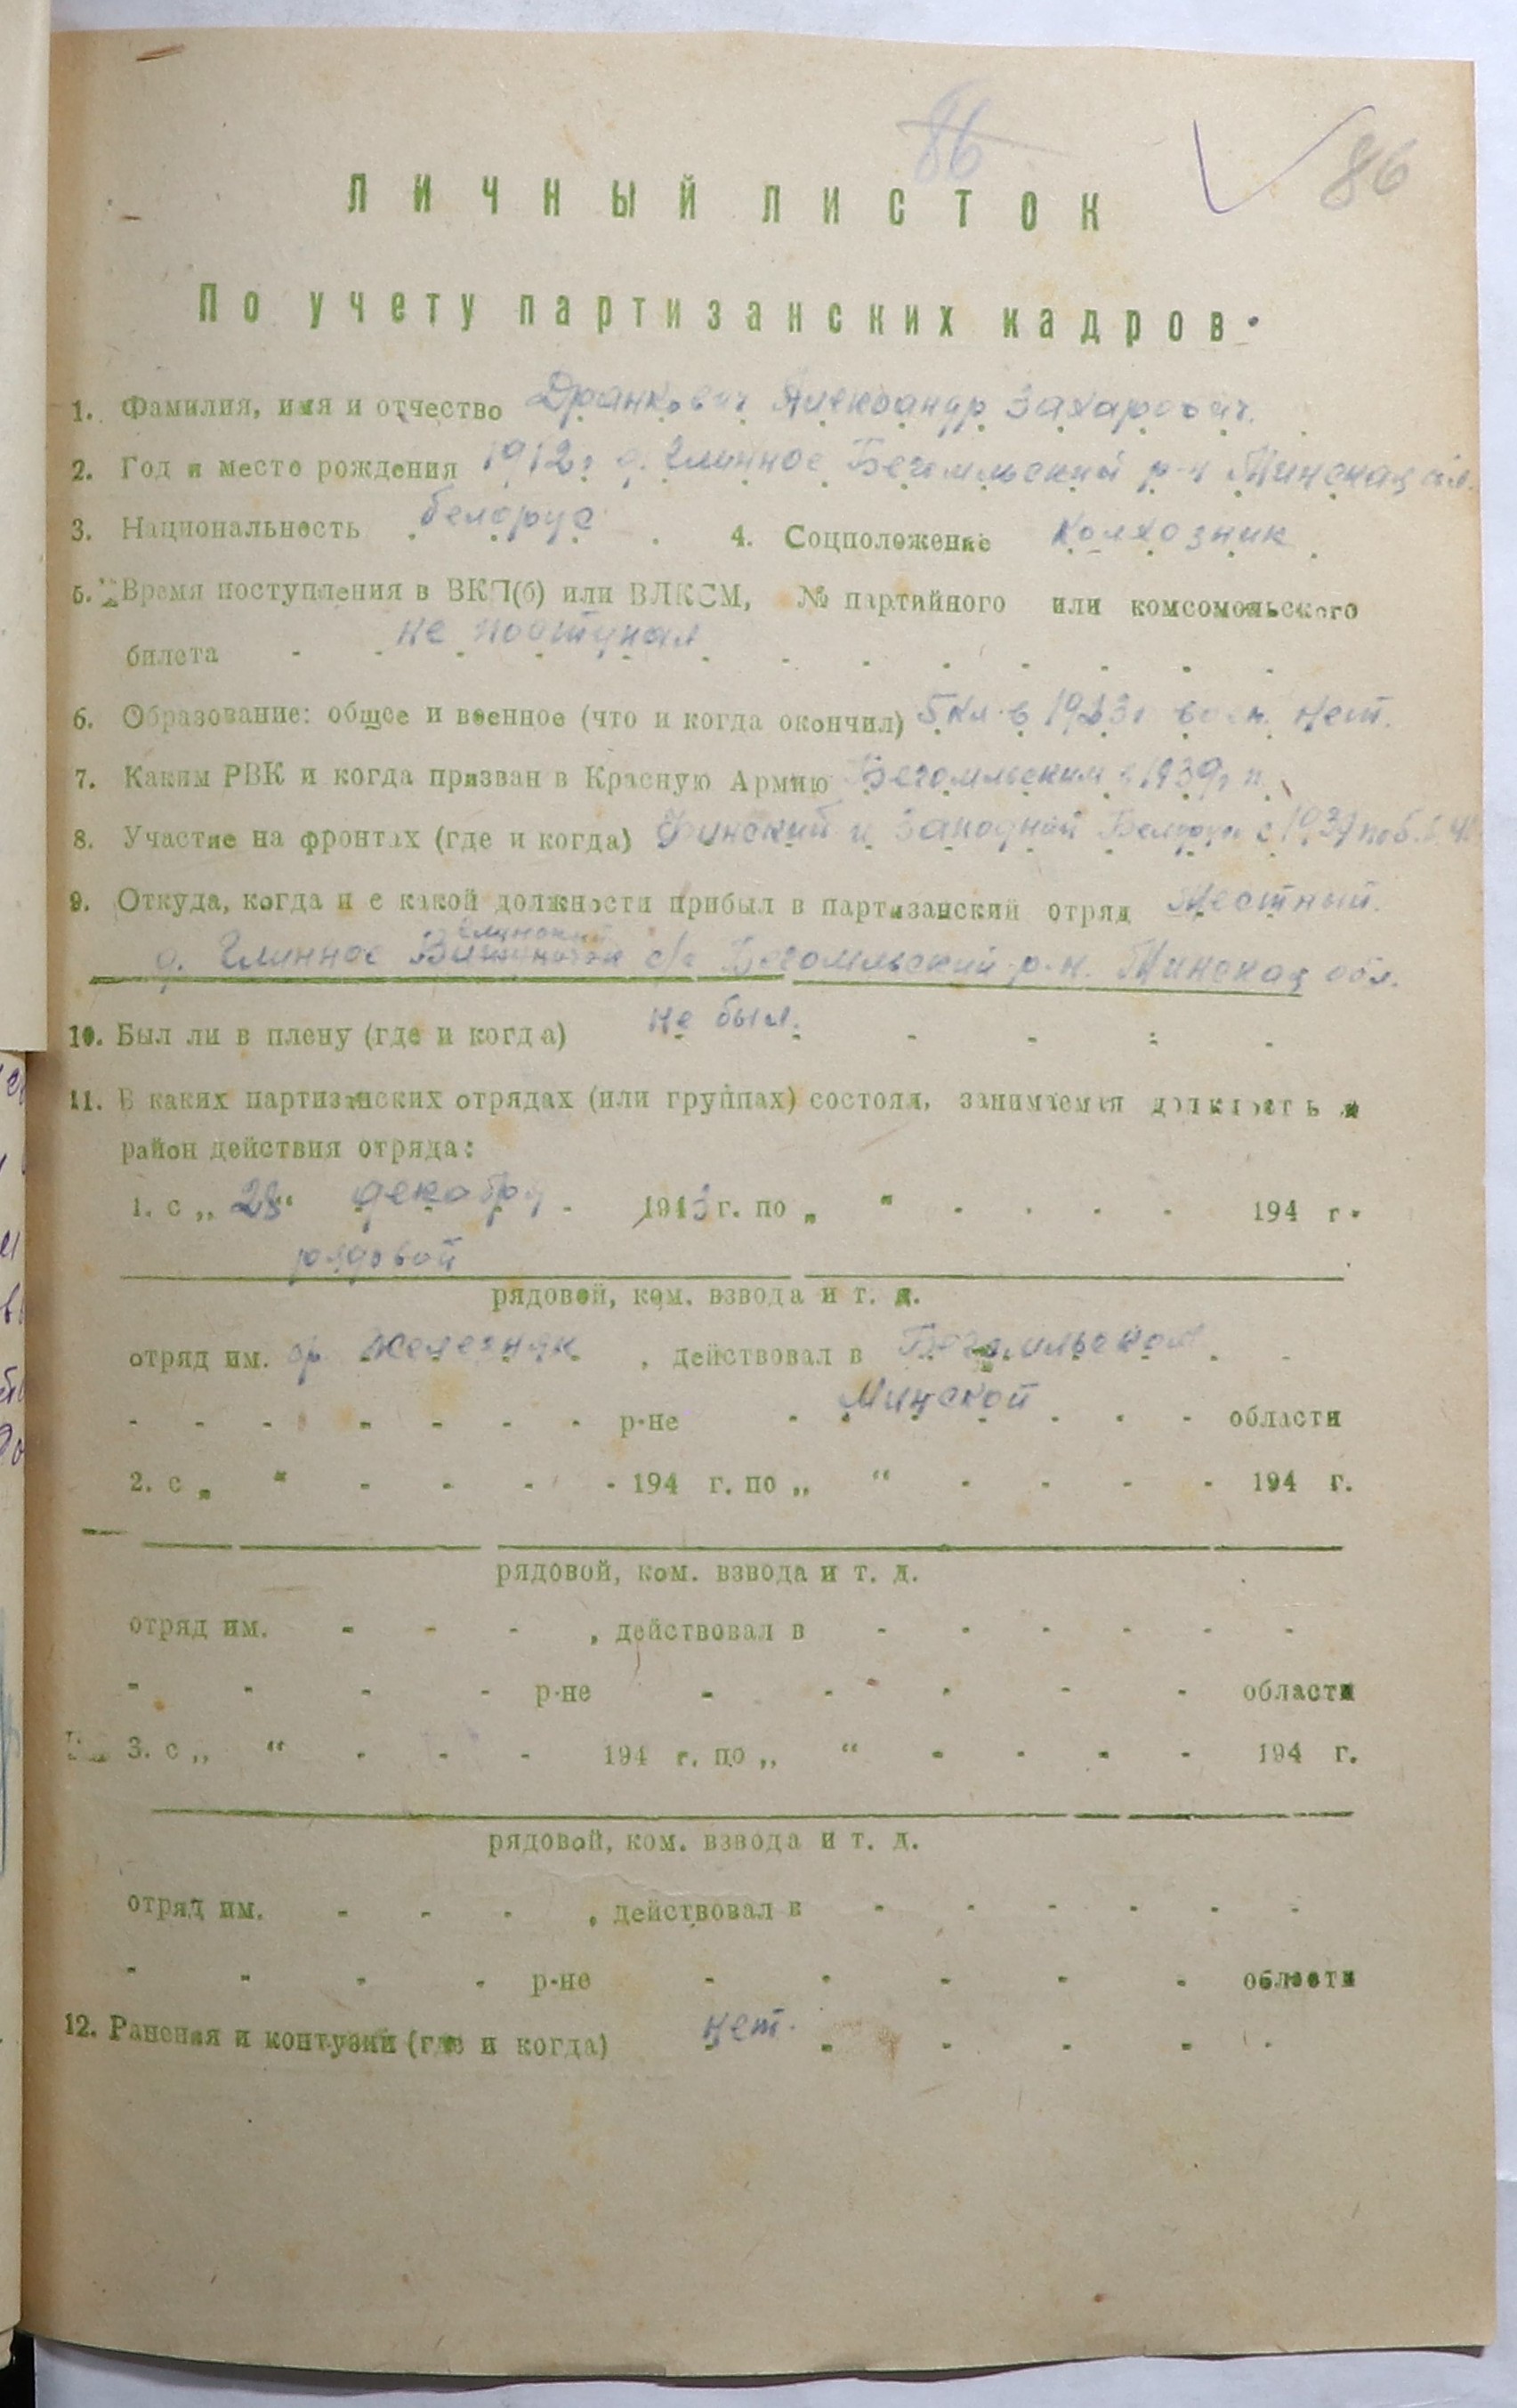 86 86
ЛИЧНЫЙ ЛИСТОК
По учету партизанских кадров.
1. Фамилия, имя и отчество Дранкович Александр Захарович.
2. Год и место рождения 1912г д. Глинное Бегомльский р-н Минская обл.
3. Национальность белорус. 4. Соцположение колхозник.
5. Время поступления в ВКП(б) или ВЛКСМ, № партийного или комсомольского
билета не поступал
6. Образование: общее и военное (что и когда окончил) 5 кл. в воен. нет.
7. Каким РВК и когда призван в Красную Армию Бегомльским в 1939г
8. Участие на фронтах (где и когда) Финский и Западной с 1939 по
9. Откуда, когда и с какой должности прибыл в партизанский отряд Местный.
д. Глинное с/с Бегомльский р-н. Минская обл.
10. Был ли в плену (где и когда) не был.
11. В каких партизанских отрядах (или группах) состоял, занимаемая должность и
район действия отряда:
1. с „28“ декабря 1943 г. по „ “ 194 г.
рядовой
рядовой, ком. взвода и т. д.
отряд им. бр. Железняк, действовал в Бегомльском
р-не Минской области
2. с „ “ 194 г. по „ “ 194 г.
рядовой, ком. взвода и т. д.
отряд им. , действовал в
р-не области
3. с „ “ 194 г. по „ “ 194 г.
рядовой, ком. взвода и т. д.
отряд им. , действовал в
р-не области
12. Ранения и контузии (где и когда) нет.